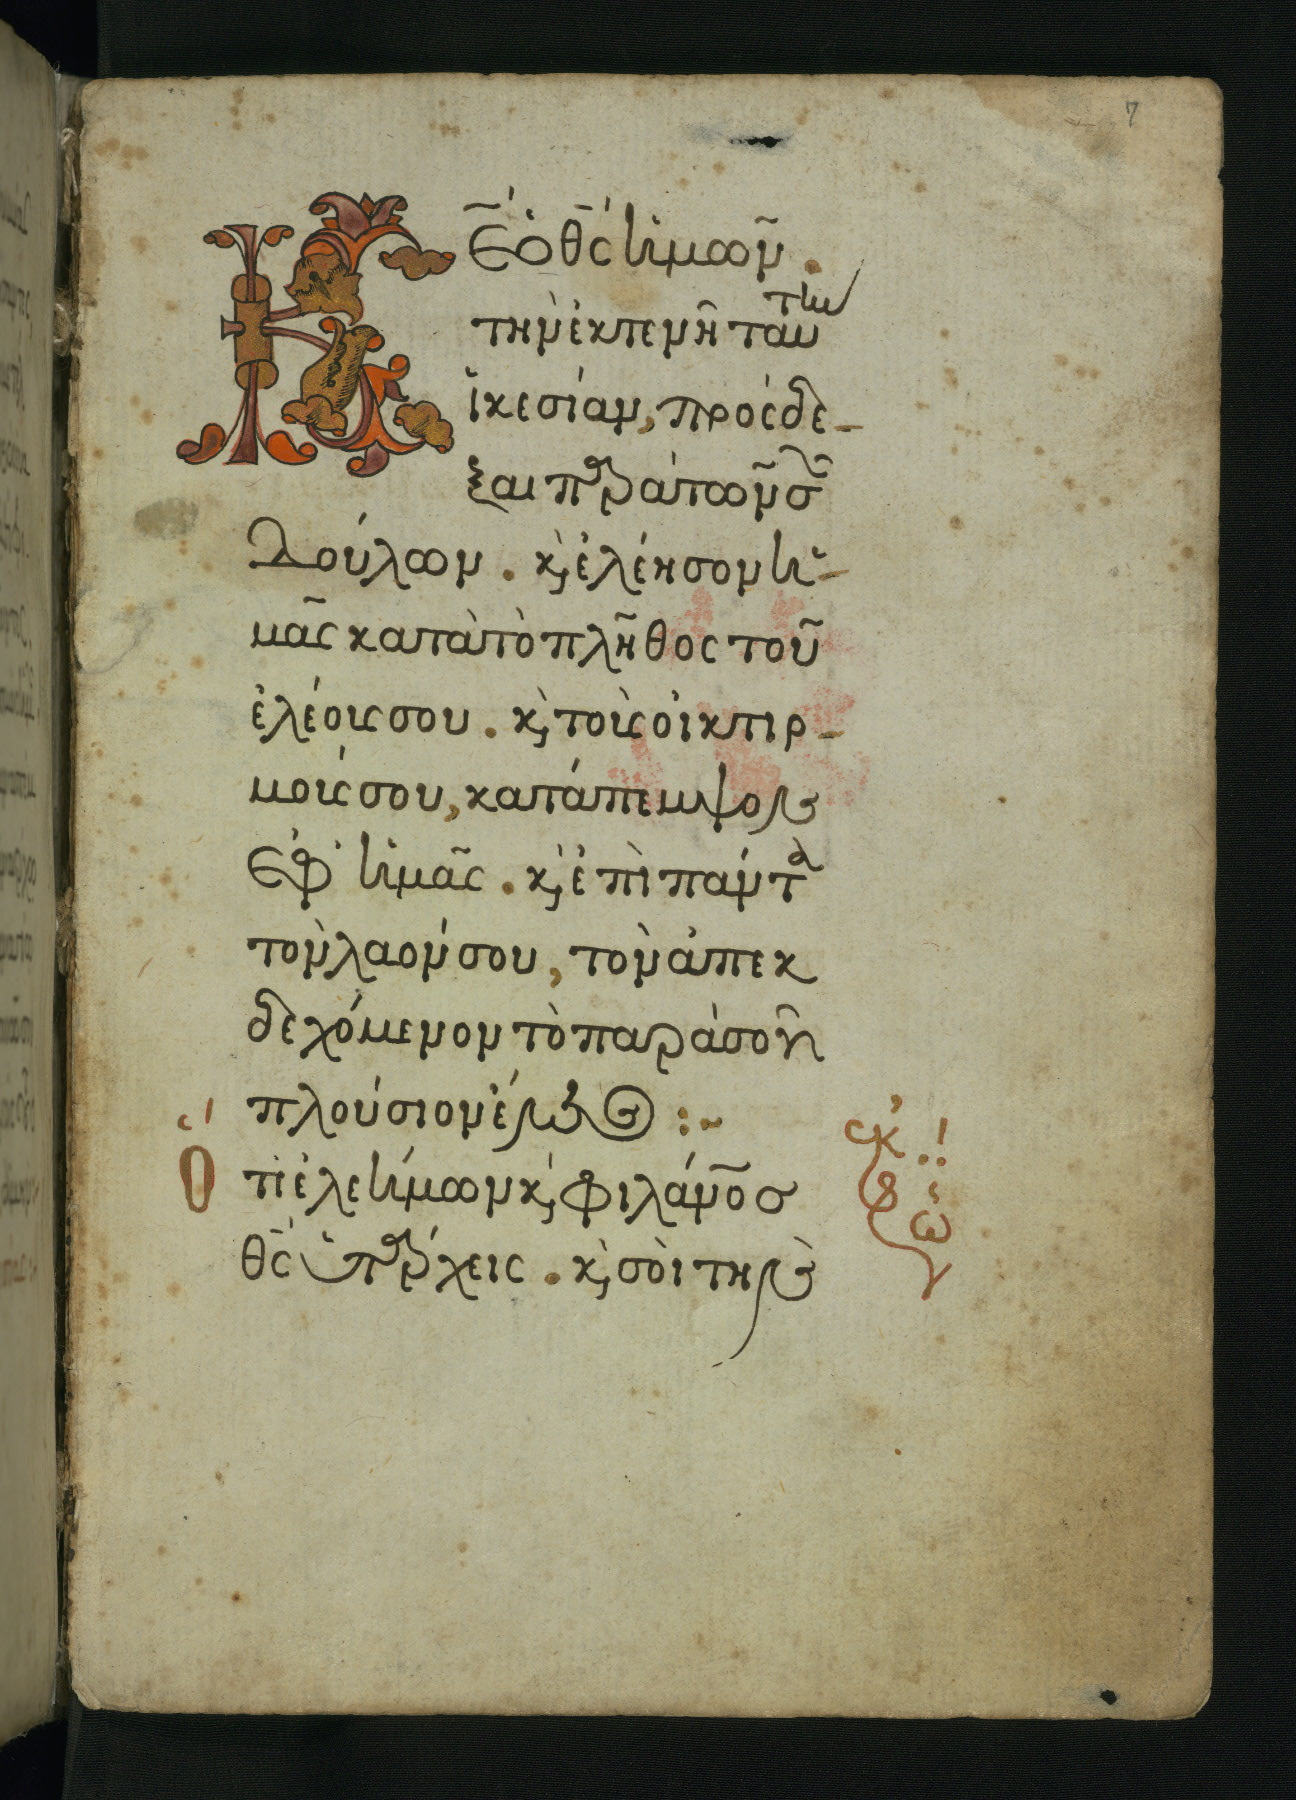 7
Κε ὁ θς ἡμῶν.
τὴν ἐκτενῆ ταύτην
ἱκεσίαν, πρόσδε-
ξαι παρὰ τῶν σῶν
δούλων. κ, ἐλέησον ἡ-
μᾶς κατὰ τὸ πλῆθος τοῦ
ἐλέους σου. κ, τοὺς οἰκτιρ-
μούς σου, κατάπεμψον
ἐφ' ἡμᾶς. κ, ἐπὶ πάντα
τὸν λαόν σου, τὸν ἀπεκ
δεχόμενον τὸ παρὰ σοῦ
πλούσιον ἔλεος :~
Ὅτι ἐλεήμων κ, φιλάνος
θς ὑπάρχεις. κ, σοὶ τὴν